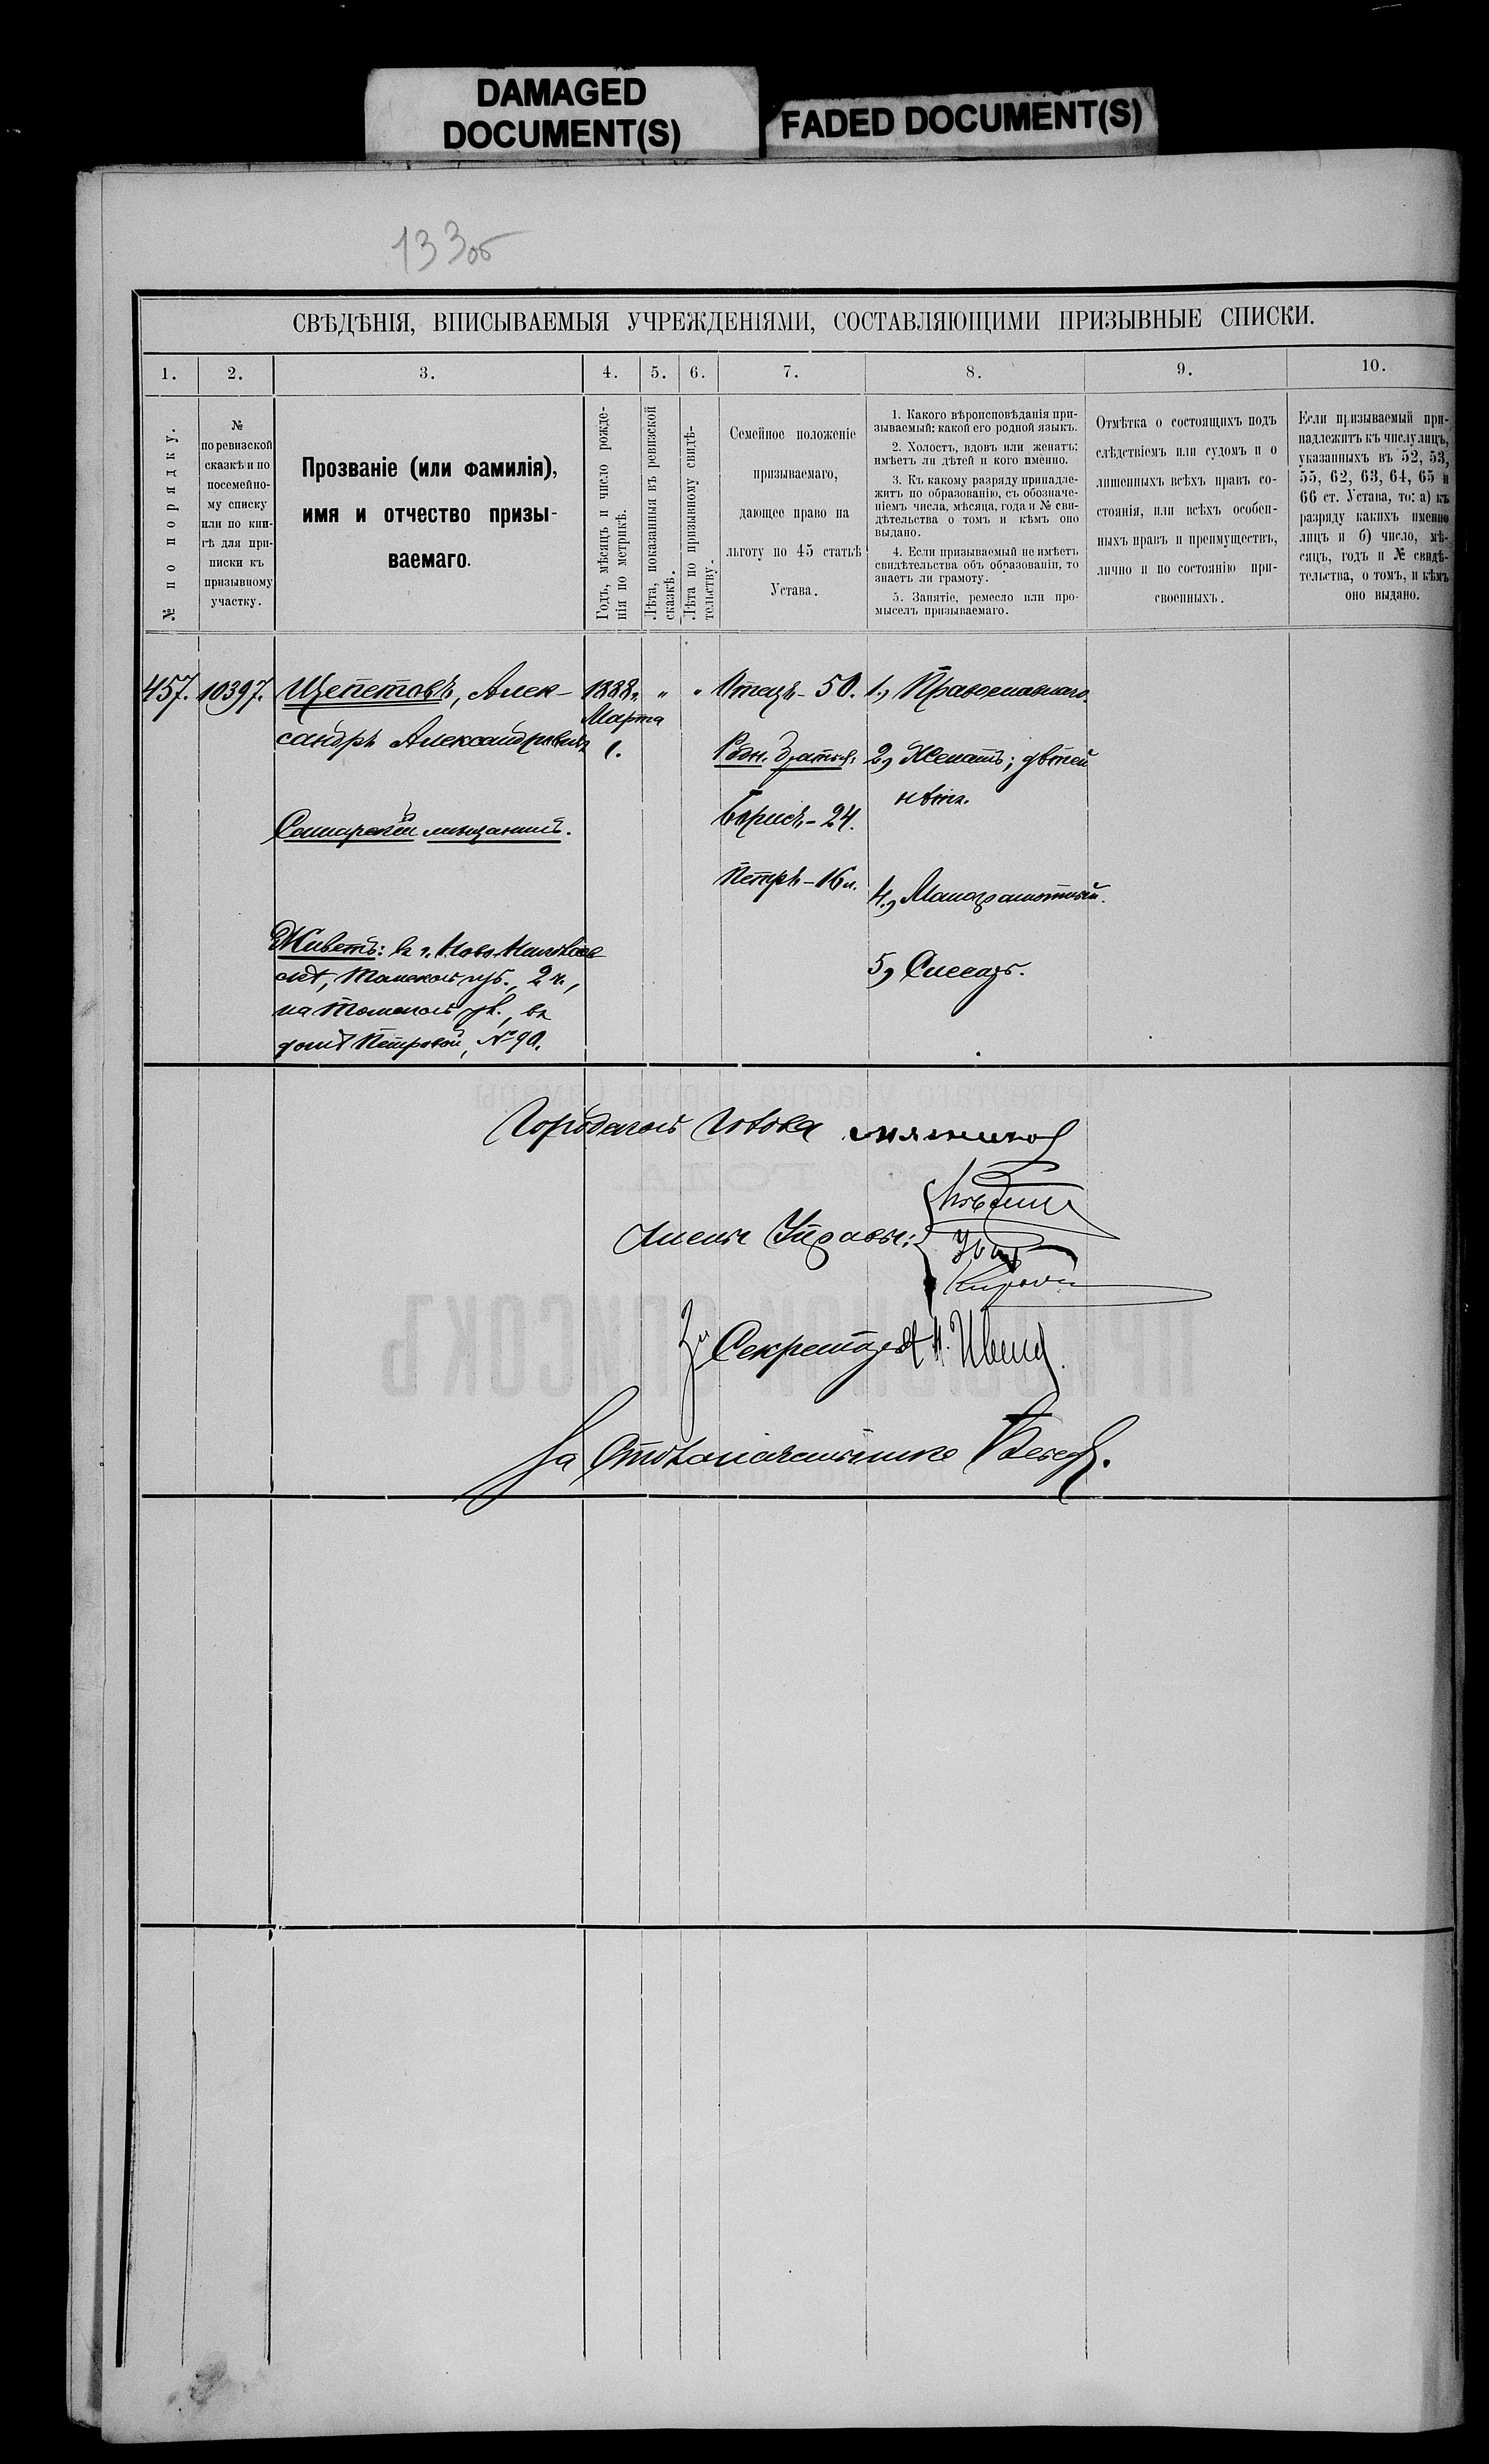 DAMAGED
DOCUMENT(S)
FADED DOCUMENT(S)
133 об
СВѢДѢНІЯ, ВПИСЫВАЕМЫЯ УЧРЕЖДЕНІЯМИ, СОСТАВЛЯЮЩИМИ ПРИЗЫВНЫЕ СПИСКИ.
1.
2.
3.
4.
5.
6.
7.
8.
9.
10.
№ по порядку.
№
по ревизской
сказкѣ и по
посемейно-
му списку
или по кни-
гѣ для при-
писки къ
призывному
участку.
Прозваніе (или фамилія),
имя и отчество призы-
ваемаго.
Годъ, мѣсяцъ и число рожде-
нія по метрикѣ.
Лѣта, показанныя въ ревизской
сказкѣ.
Лѣта по призывному свидѣ-
тельству.
Семейное положеніе
призываемаго,
дающее право на
льготу по 45 статьѣ
Устава.
1. Какого вѣроисповѣданія при-
зываемый: какой его родной языкъ.
2. Холостъ, вдовъ или женатъ;
имѣетъ ли дѣтей и кого именно.
3. Къ какому разряду принадле-
житъ по образованію, съ обозначе-
ніемъ числа, мѣсяца, года и № сви-
дѣтельства о томъ и кѣмъ оно
выдано.
4. Если призываемый не имѣетъ
свидѣтельства объ образованіи, то
знаетъ ли грамоту.
5. Занятіе, ремесло или про-
мыселъ призываемаго.
Отмѣтка о состоящихъ подъ
слѣдствіемъ или судомъ и о
лишенныхъ всѣхъ правъ со-
стоянія, или всѣхъ особен-
ныхъ правъ и преимуществъ,
лично и по состоянію при-
своенныхъ.
Если призываемый при-
надлежитъ къ числу лицъ,
указанныхъ въ 52, 53,
55, 62, 63, 64, 65 и
66 ст. Устава, то: а) къ
разряду какихъ именно
лицъ и б) число, мѣ-
сяцъ, годъ и № свидѣ-
тельства, о томъ, и кѣмъ
оно выдано.
457.
10397.
Щепетовъ, Алек-
сандръ Александровичъ
Самарскій мѣщанинъ.
Живетъ: въ г. Ново-Николаев
скѣ, Томской губ., 2 ч.,
на Томской ул., въ
домѣ Петровой, № 90.
1888 г.
Марта
1.
"
"
Отецъ - 50.
Родн. братья:
Борисъ - 24.
Петръ - 16 л.
1, Православнаго.
2, Женатъ; дѣтей
нѣтъ.
4, Малограмотный.
5, Слесарь.
Городской Голова
Члены Управы:
За Секретаря
За Столоначальника